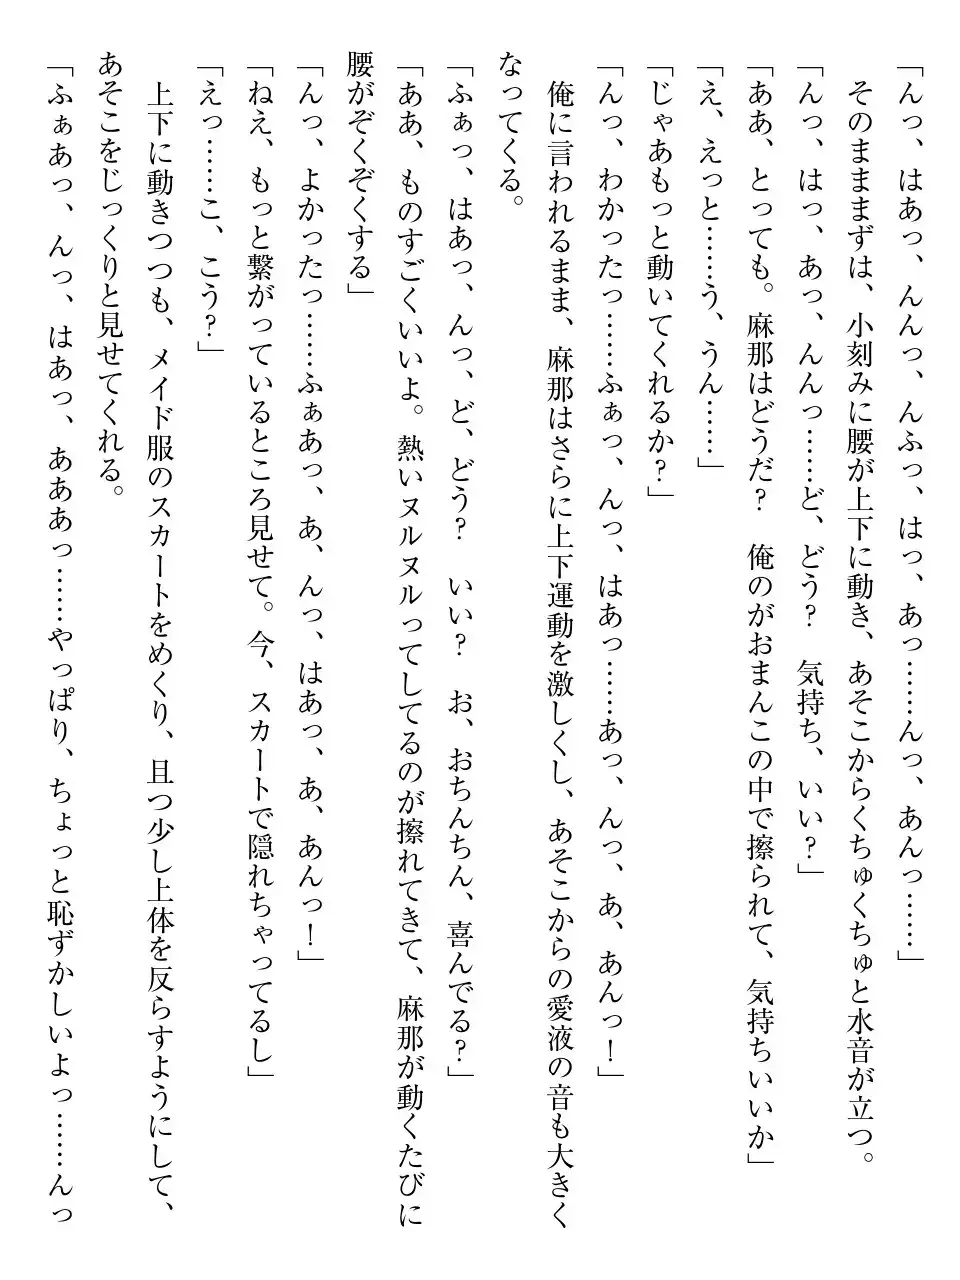 「んっ、はあっ、んんっ、んふっ、はっ、あっ……んっ、あんっ……」
　そのまままずは、小刻みに腰が上下に動き、あそこからくちゅくちゅと水音が立つ。
「んっ、はっ、あっ、んんっ……ど、どう？　気持ち、いい？」
「ああ、とっても。麻那はどうだ？　俺のがおまんこの中で擦られて、気持ちいいか」
「え、えっと……う、うん……」
「じゃあもっと動いてくれるか？」
「んっ、わかったっ……ふぁっ、んっ、はあっ……あっ、んっ、あ、あんっ！」
　俺に言われるまま、麻那はさらに上下運動を激しくし、あそこからの愛液の音も大きく
なってくる。
「ふぁっ、はあっ、んっ、ど、どう？　いい？　お、おちんちん、喜んでる？」
「ああ、ものすごくいいよ。熱いヌルヌルってしてるのが擦れてきて、麻那が動くたびに
腰がぞくぞくする」
「んっ、よかったっ……ふぁあっ、あ、んっ、はあっ、あ、あんっ！」
「ねえ、もっと繋がっているところ見せて。今、スカートで隠れちゃってるし」
「えっ……こ、こう？」
　上下に動きつつも、メイド服のスカートをめくり、且つ少し上体を反らすようにして、
あそこをじっくりと見せてくれる。
「ふぁあっ、んっ、はあっ、あああっ……やっぱり、ちょっと恥ずかしいよっ……んっ